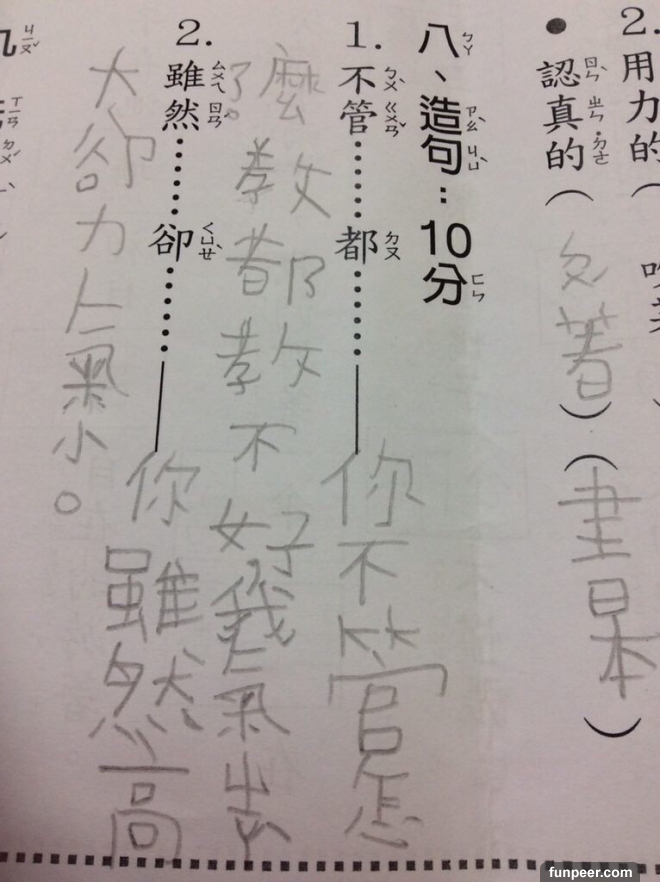 2.用力的（
●認真的（著）（
八、造句：10分
1.不管……都……你不管怎
麼教都教不好我氣
了。
2.雖然……卻……你雖然高
大卻力氣小。
funpeer.com